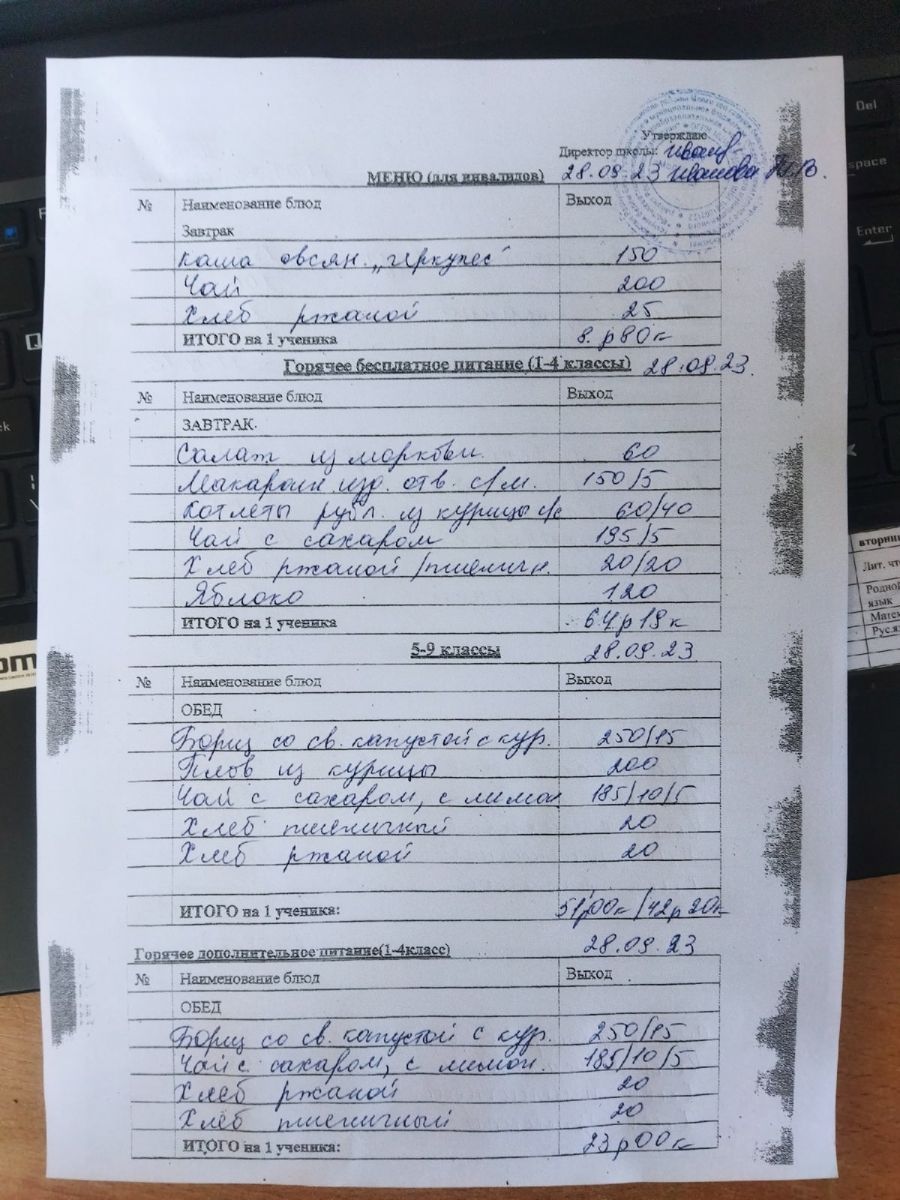 Утверждаю
Директор школы:
МЕНЮ (для инвалидов) 28.09.23 Иванова Т.В.
№ Наименование блюд Выход
Завтрак
Каша овсян. „Геркулес" 150
Чай 200
Хлеб ржаной 25
ИТОГО на 1 ученика 8.р80к
Горячее бесплатное питание (1-4 классы) 28.09.23
№ Наименование блюд Выход
ЗАВТРАК
Салат из моркови 60
Макарон. изд. отв. с/м. 150/5
Котлеты рубл. из курицы с/с 60/40
Чай с сахаром 195/5
Хлеб ржаной/пшеничн. 20/20
Яблоко 120
ИТОГО на 1 ученика 64р19к
5-9 классы 28.09.23
№ Наименование блюд Выход
ОБЕД
Борщ со св. капустой с кур. 250/15
Плов из курицы 200
Чай с сахаром, с лимон 185/10/5
Хлеб пшеничный 20
Хлеб ржаной 20
ИТОГО на 1 ученика: 51р00к/42р20к
28.09.23
Горячее дополнительное питание(1-4класс)
№ Наименование блюд Выход
ОБЕД
Борщ со св. капустой с кур. 250/15
Чай с сахаром, с лимон. 185/10/5
Хлеб ржаной 20
Хлеб пшеничный 20
ИТОГО на 1 ученика: 23р00к
Del
Enter
вторник
Лит. чт
Родной
язык
Матем
Рус.яз